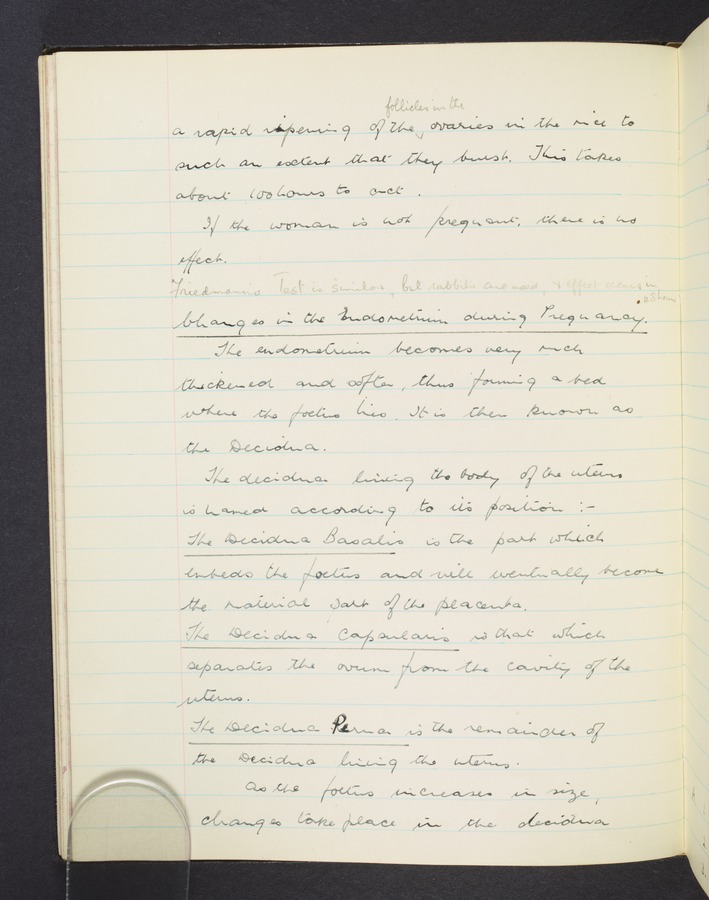 follicles in the
a rapid ripening of the ovaries in the mice to
such an extent that they burst. This takes
about 100 hours to act.
If the woman is not pregnant, there is no
effect.
Friedman's Test is similar, but rabbits are used, & effect occurs in
Changes in the Endometrium during Pregnancy.
The endometrium becomes very much
thickened and softer, thus forming a bed
where the foetus lies. It is then known as
the Decidua.
The decidua lining the body of the uterus
is named according to its position :-
The Decidua Basalis is the part which
embeds the foetus and will eventually become
the maternal part of the placenta.
The Decidua Capsularis is that which
separates the ovum from the cavity of the
uterus.
The Decidua is the remainder of
the Decidua lining the uterus.
As the foetus increases in size,
changes take place in the decidua